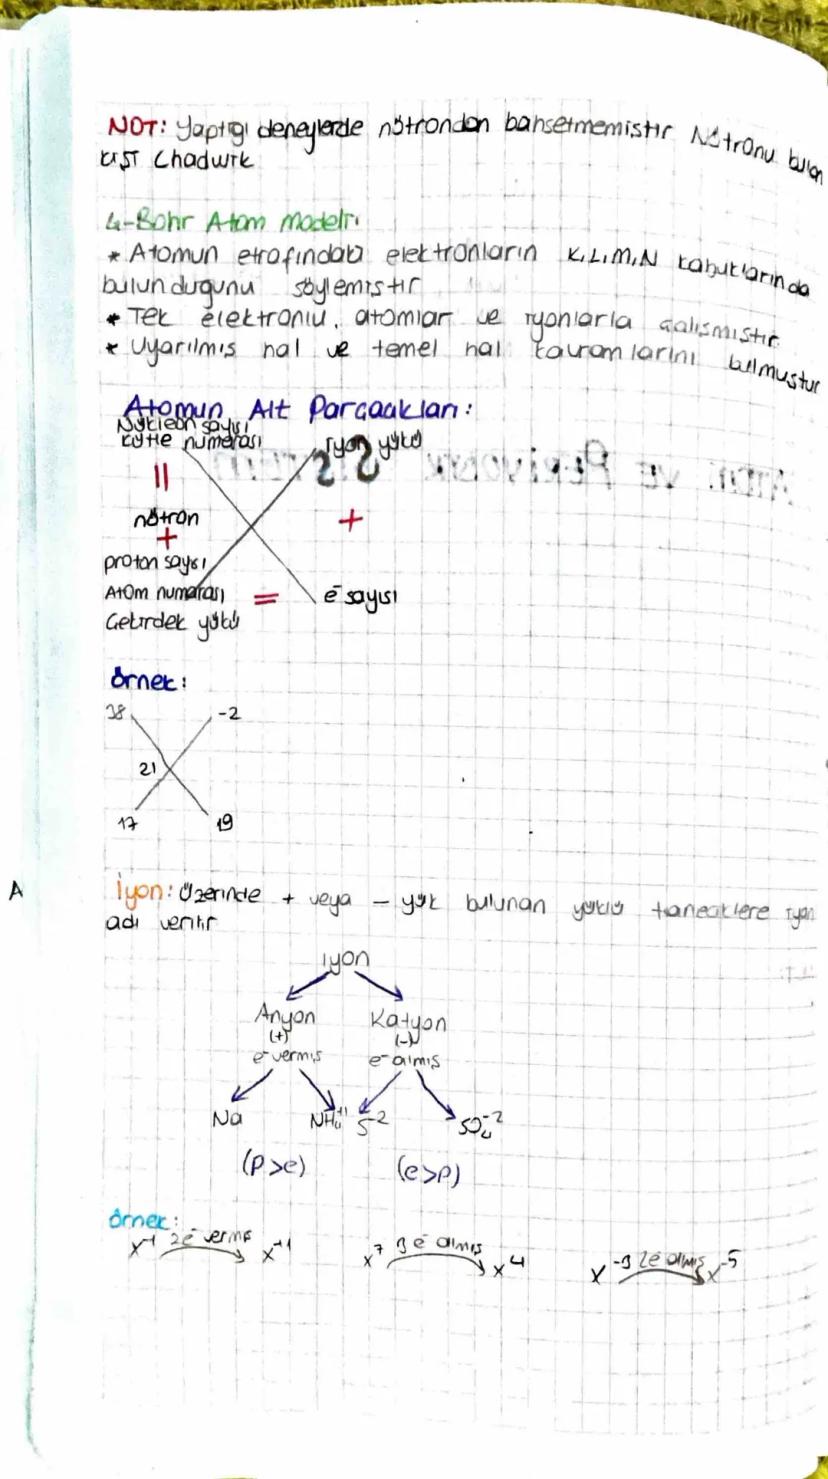 NOT: Yaptıgı deneylerde nötrondan bahsetmemistir Nötronu bulan
kişi Chadwik
4-Bohr Atom Modeli
* Atomun etrafındaki elektronların K,L,M,N kabuklarında
bulundugunu söylemistir
* Tek elektronlu, atomlar ve iyonlarla calismistir
* Uyarılmıs hal ve temel hal kavramlarını bulmustur
Atomun Alt Parcacıkları:
Nükleon sayısı
kütle numarası iyon yükü
=
nötron +
+
proton sayısı
Atom numarası = e⁻ sayısı
Cekirdek yükü
Örnek:
38 -2
21
17 19
İyon: Üzerinde + veya - yük bulunan yüklü taneciklere iyon
adı verilir
iyon
Anyon Katyon
(+) (-)
e⁻ vermis e⁻ almıs
Na NH₄⁺¹ S⁻² SO₄⁻²
(p>e) (e>p)
Örnek:
X⁻¹ 2e⁻ vermis X⁺¹ X⁷ 3 e⁻ almıs X⁴ X⁻³ 2e⁻ almıs X⁻⁵
A